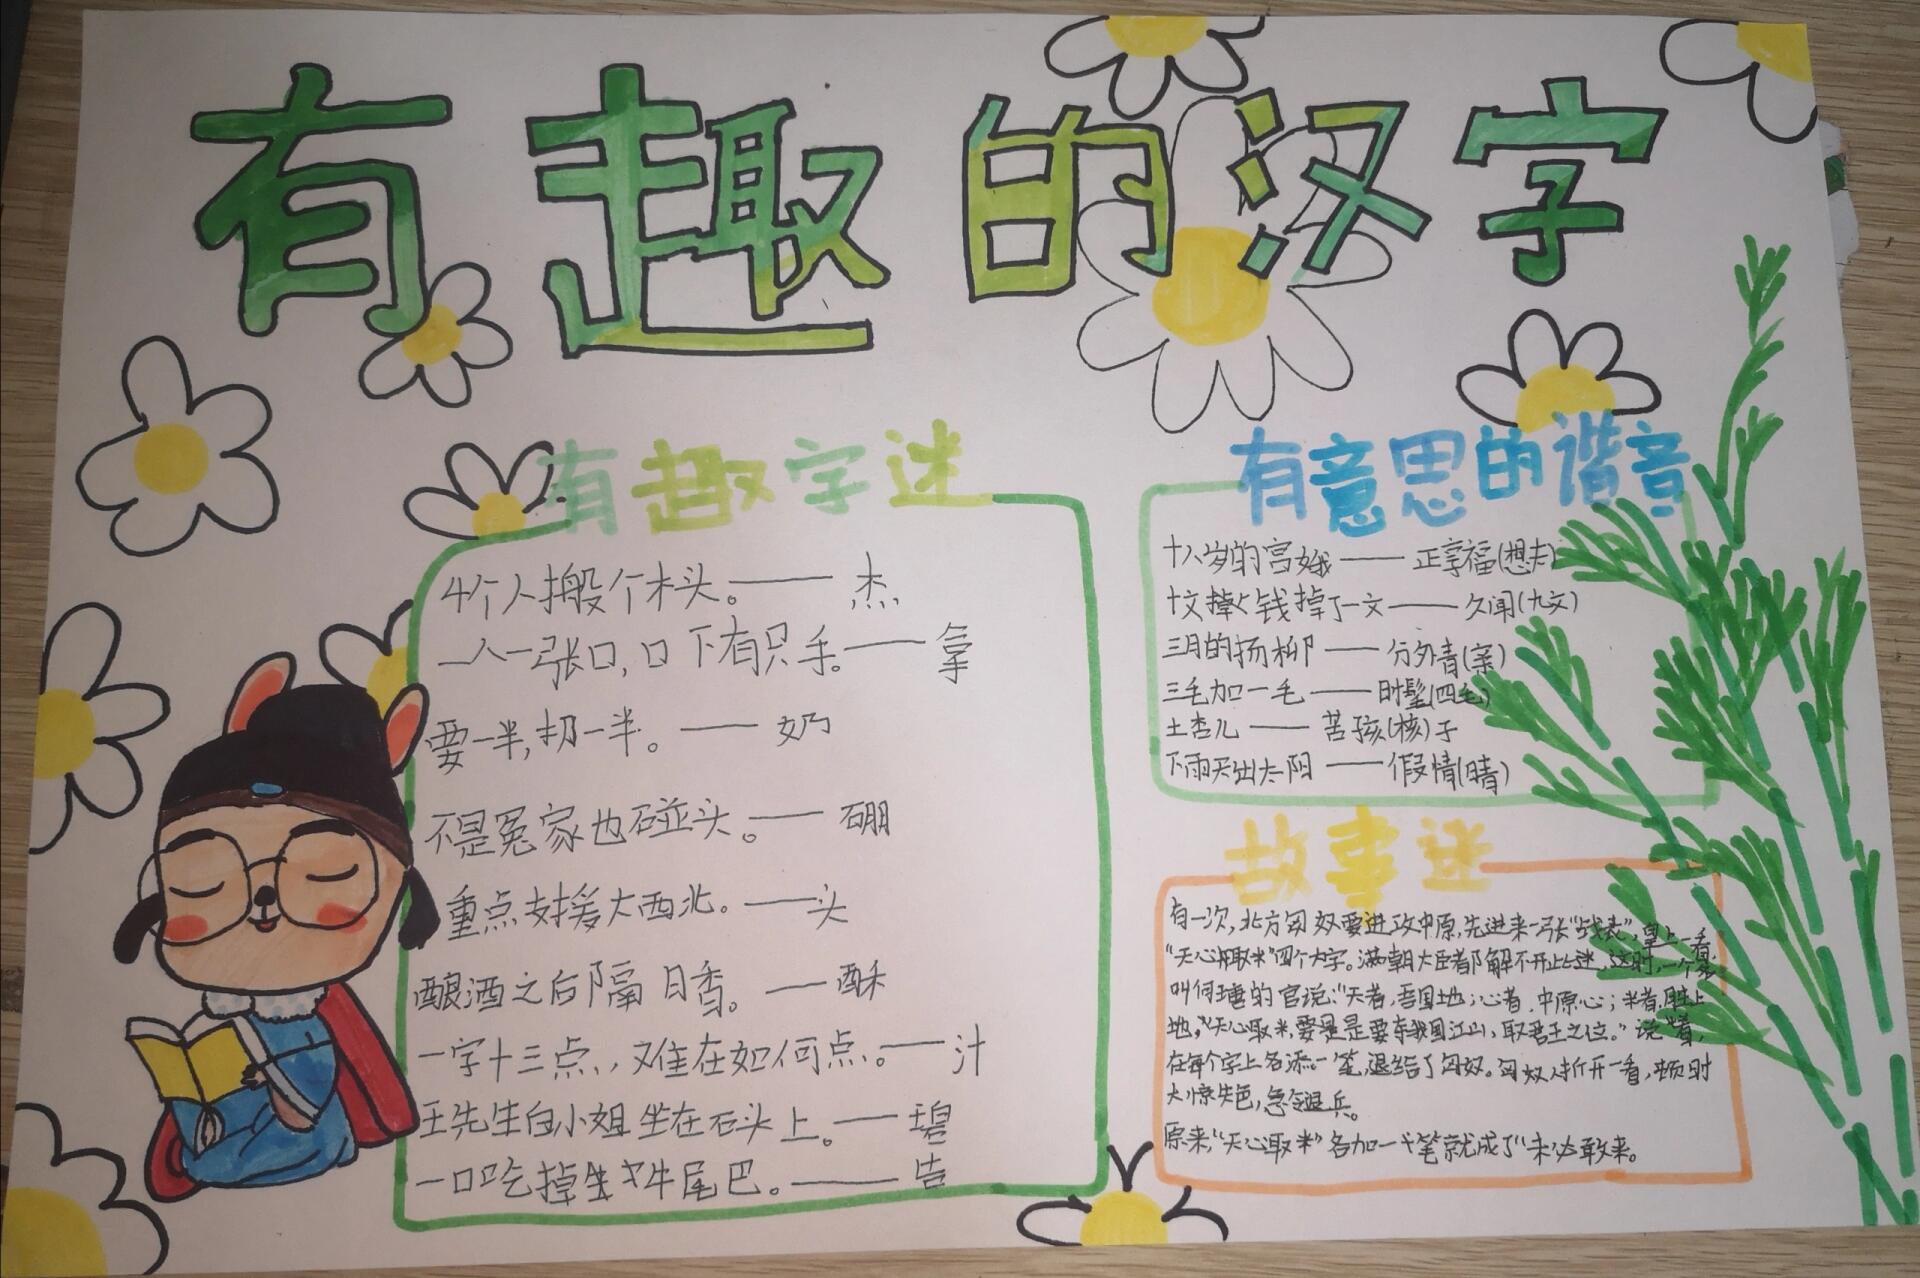 有趣的汉字
有趣字迷
4个人搬个木头。—— 杰
一人一张口,口下有只手。—— 拿
要一半,扔一半。—— 奶
不是冤家也碰头。—— 硼
重点支援大西北。—— 头
酿酒之后隔日香。—— 酥
一字十三点,难在如何点。—— 汁
王先生白小姐坐在石头上。—— 碧
一口吃掉牛尾巴。—— 告
有意思的谐音
十八岁的宫娥 —— 正享福(想夫)
十文掉了一文 —— 久闻(九文)
三月的扬柳 —— 分外青(亲)
三毛加一毛 —— 时髦(四毛)
土杏儿 —— 苦孩(核)子
下雨天出太阳 —— 假情(晴)
故事迷
有一次,北方匈奴要进攻中原,先进来一张“战表”,皇上一看,
“天心取米”四个大字。满朝大臣都解不开此迷,这时,一个
叫何瑭的官说:“天者,吾国地;心者,中原心;米者,
地。“天心取米,要是是要夺我国江山,取君王之位。”说着,
在每个字上各添一笔,退给了匈奴。匈奴人拆开一看,顿时
大惊失色,急令退兵。
原来,“天心取米”各加一个笔就成了“未必敢来。